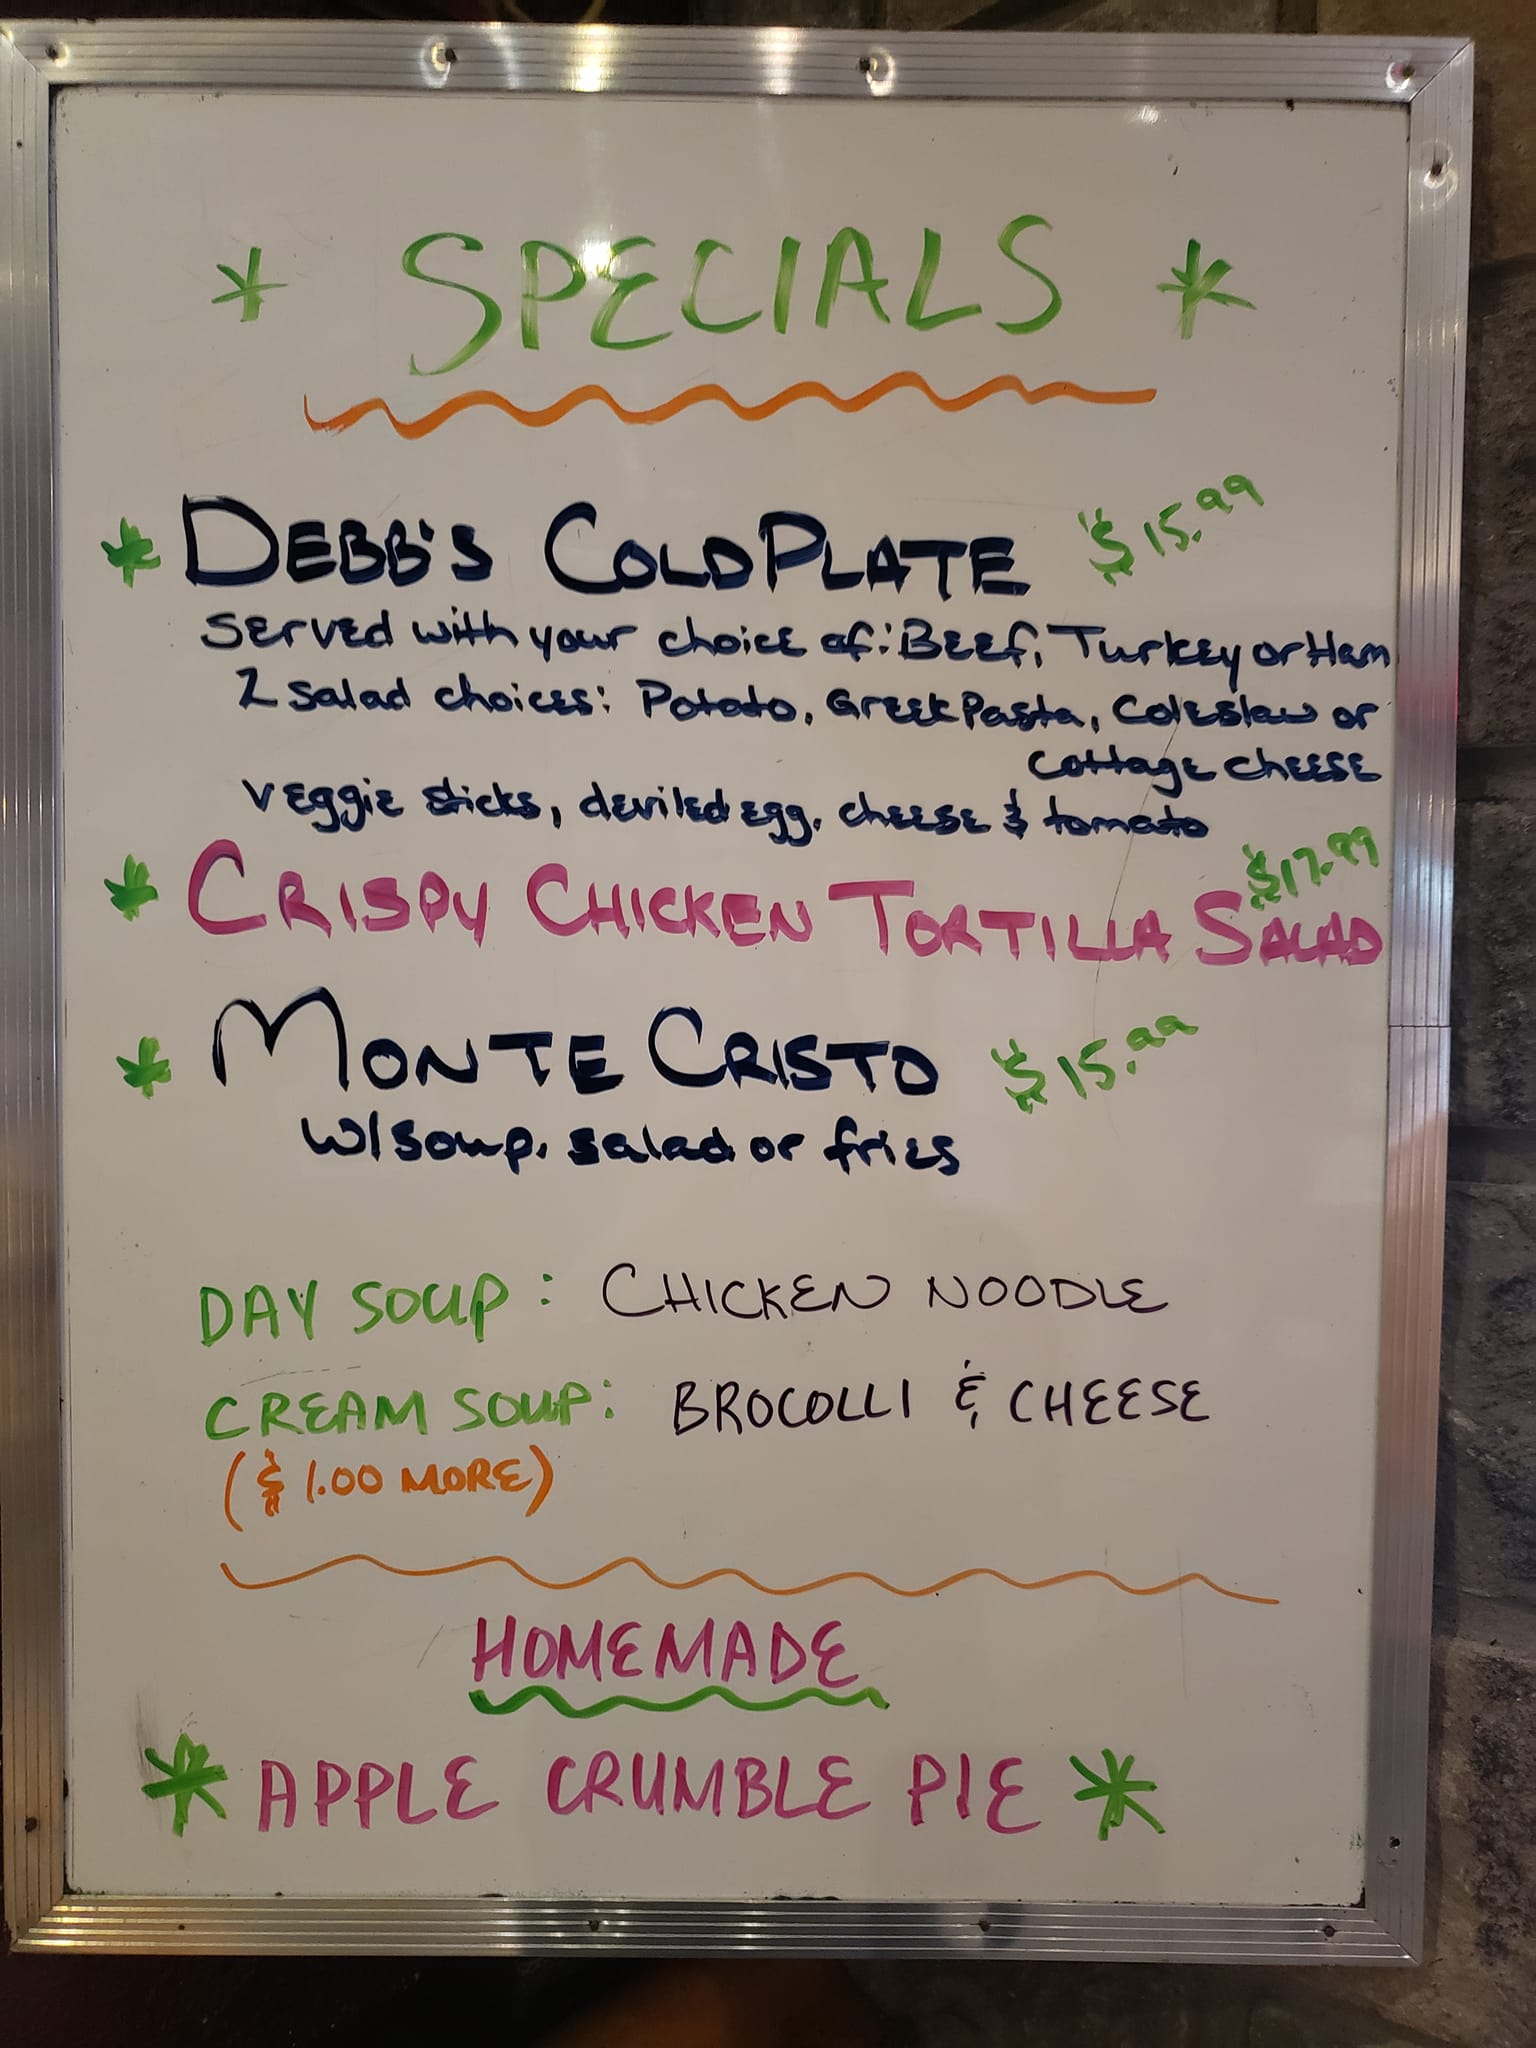 * SPECIALS *
* DEBB'S COLD PLATE $15.99
Served with your choice of: Beef, Turkey or Ham
2 salad choices: Potato, Greek Pasta, Coleslaw or
cottage cheese
veggie sticks, deviled egg, cheese & tomato
$17.99
* CRISPY CHICKEN TORTILLA SALAD
* MONTE CRISTO $15.99
w/soup, salad or fries
DAY SOUP: CHICKEN NOODLE
CREAM SOUP: BROCOLLI & CHEESE
($1.00 MORE)
HOMEMADE
* APPLE CRUMBLE PIE *